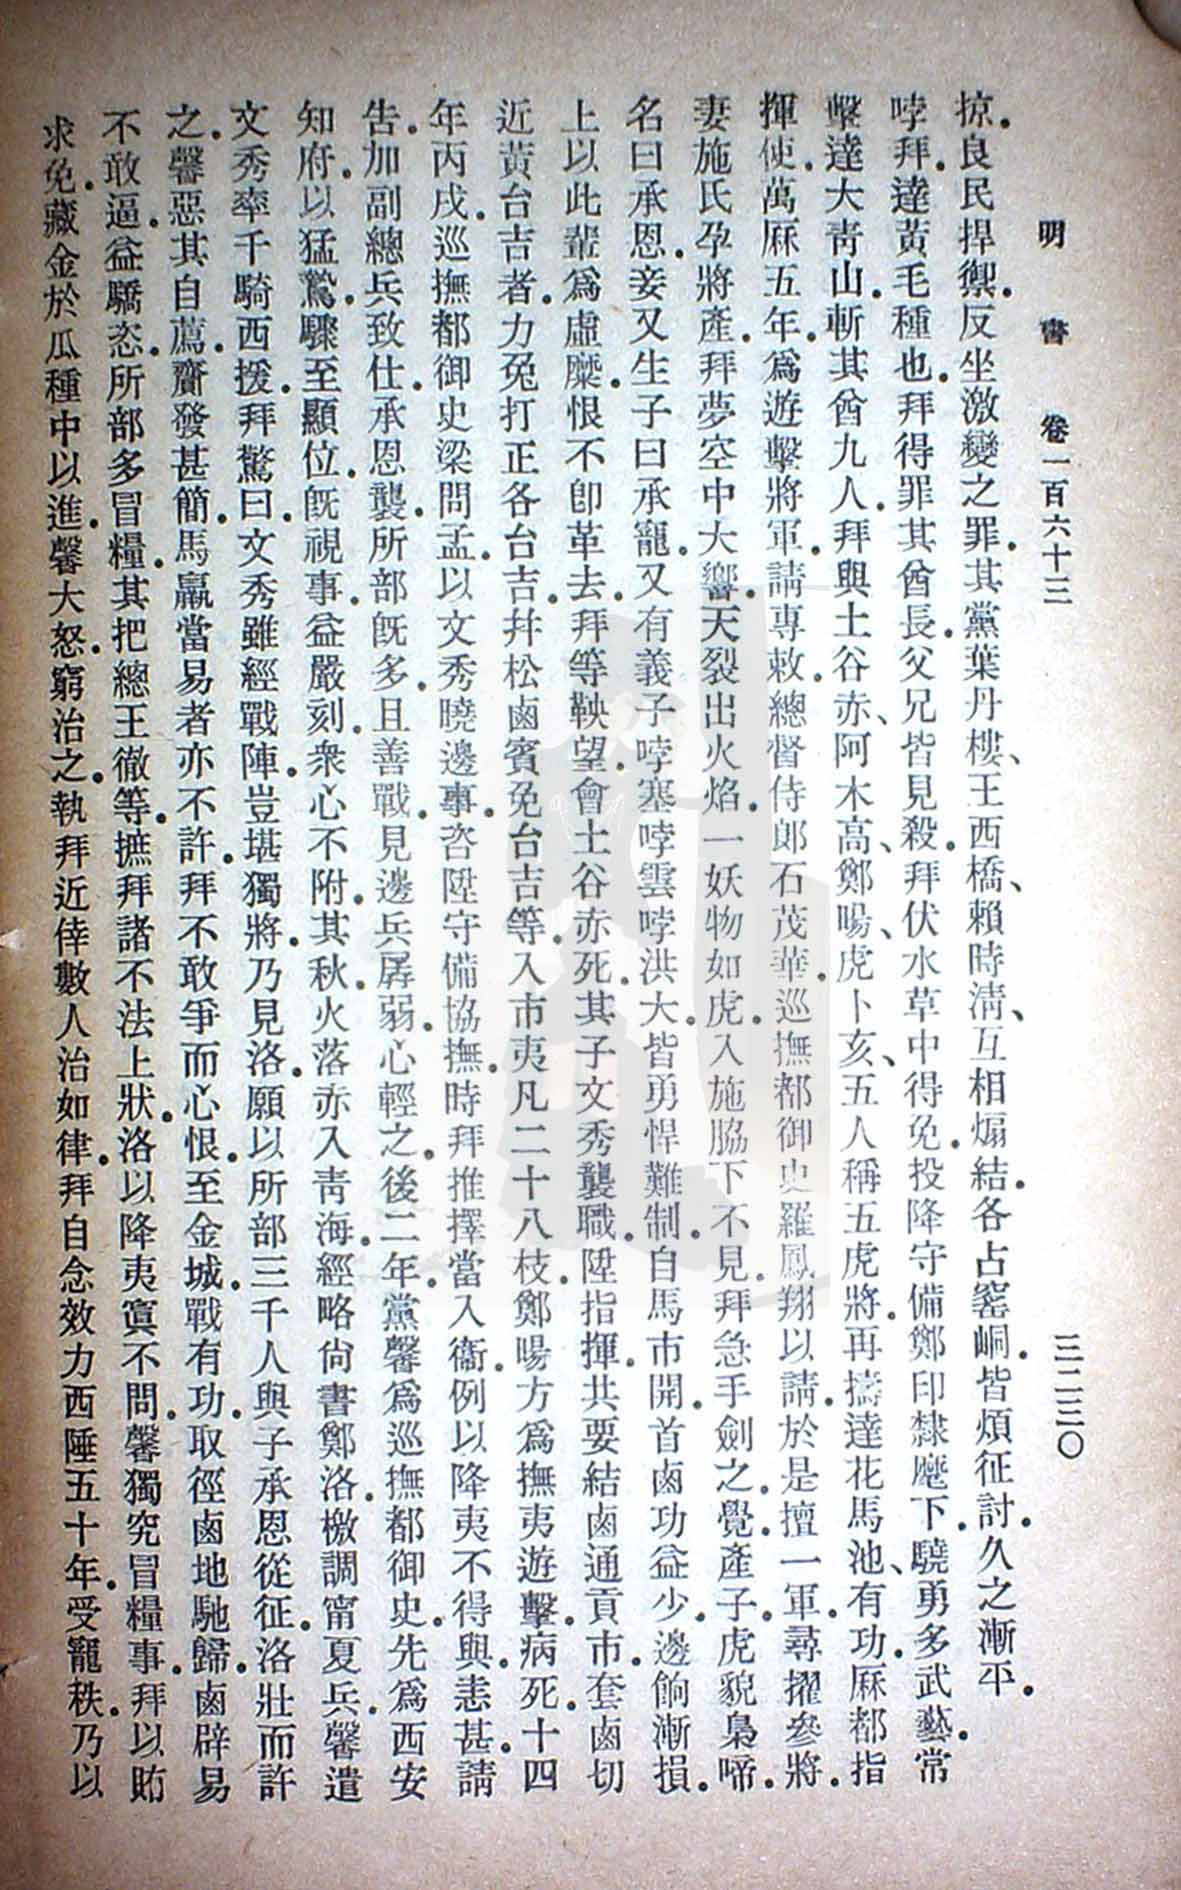 明書 卷一百六十三 三二三〇
掠。良民捍禦。反坐激變之罪。其黨葉丹樓、王西橋、賴時淸、互相煽結。各占窰峒。皆煩征討。久之漸平。
哱拜。達黃毛種也。拜得罪其酋長。父兄皆見殺。拜伏水草中得免。投降守備鄭印隸麾下。驍勇多武藝。常
擊達大靑山。斬其酋九人。拜與土谷赤、阿木高、鄭暘、虎卜亥、五人稱五虎將。再擣達花馬池、有功。麻都指
揮使。萬厤五年。爲遊擊將軍。請專敕。總督侍郞石茂華。巡撫都御史羅鳳翔以請。於是擅一軍。尋擢參將。
妻施氏孕將產。拜夢空中大響。天裂出火焰。一妖物如虎。入施脇下不見。拜急手劍之。覺產子。虎貌梟啼。
名曰承恩。妾又生子曰承寵。又有義子哱塞哱雲哱洪大。皆勇悍難制。自馬市開。首鹵功益少。邊餉漸損。
上以此輩爲虛糜。恨不卽革去。拜等鞅望。會土谷赤死。其子文秀襲職。陞指揮。共要結鹵通貢市。套鹵切
近黃台吉者。力兔打正各台吉。幷松鹵賓兔台吉等。入市夷凡二十八枝。鄭暘方爲撫夷遊擊。病死。十四
年丙戌。巡撫都御史梁問孟。以文秀曉邊事。咨陞守備協撫。時拜推擇當入衞。例以降夷不得與。恚甚。請
告。加副總兵致仕。承恩襲。所部旣多。且善戰。見邊兵孱弱。心輕之。後二年。黨馨爲巡撫都御史。先爲西安
知府。以猛鷙。驟至顯位。旣視事。益嚴刻。衆心不附。其秋。火落赤入靑海。經略尙書鄭洛。檄調甯夏兵。馨遣
文秀率千騎西援。拜驚曰。文秀雖經戰陣。豈堪獨將。乃見洛。願以所部三千人。與子承恩從征。洛壯而許
之。馨惡其自薦。齎發甚簡。馬羸當易者亦不許。拜不敢爭而心恨。至金城。戰有功。取徑鹵地馳歸。鹵辟易
不敢逼。益驕恣。所部多冒糧。其把總王徹等。摭拜諸不法上狀。洛以降夷寘不問。馨獨究冒糧事。拜以賄
求免。藏金於瓜種中以進。馨大怒。窮治之。執拜近倖數人治如律。拜自念效力西陲五十年。受寵秩。乃以